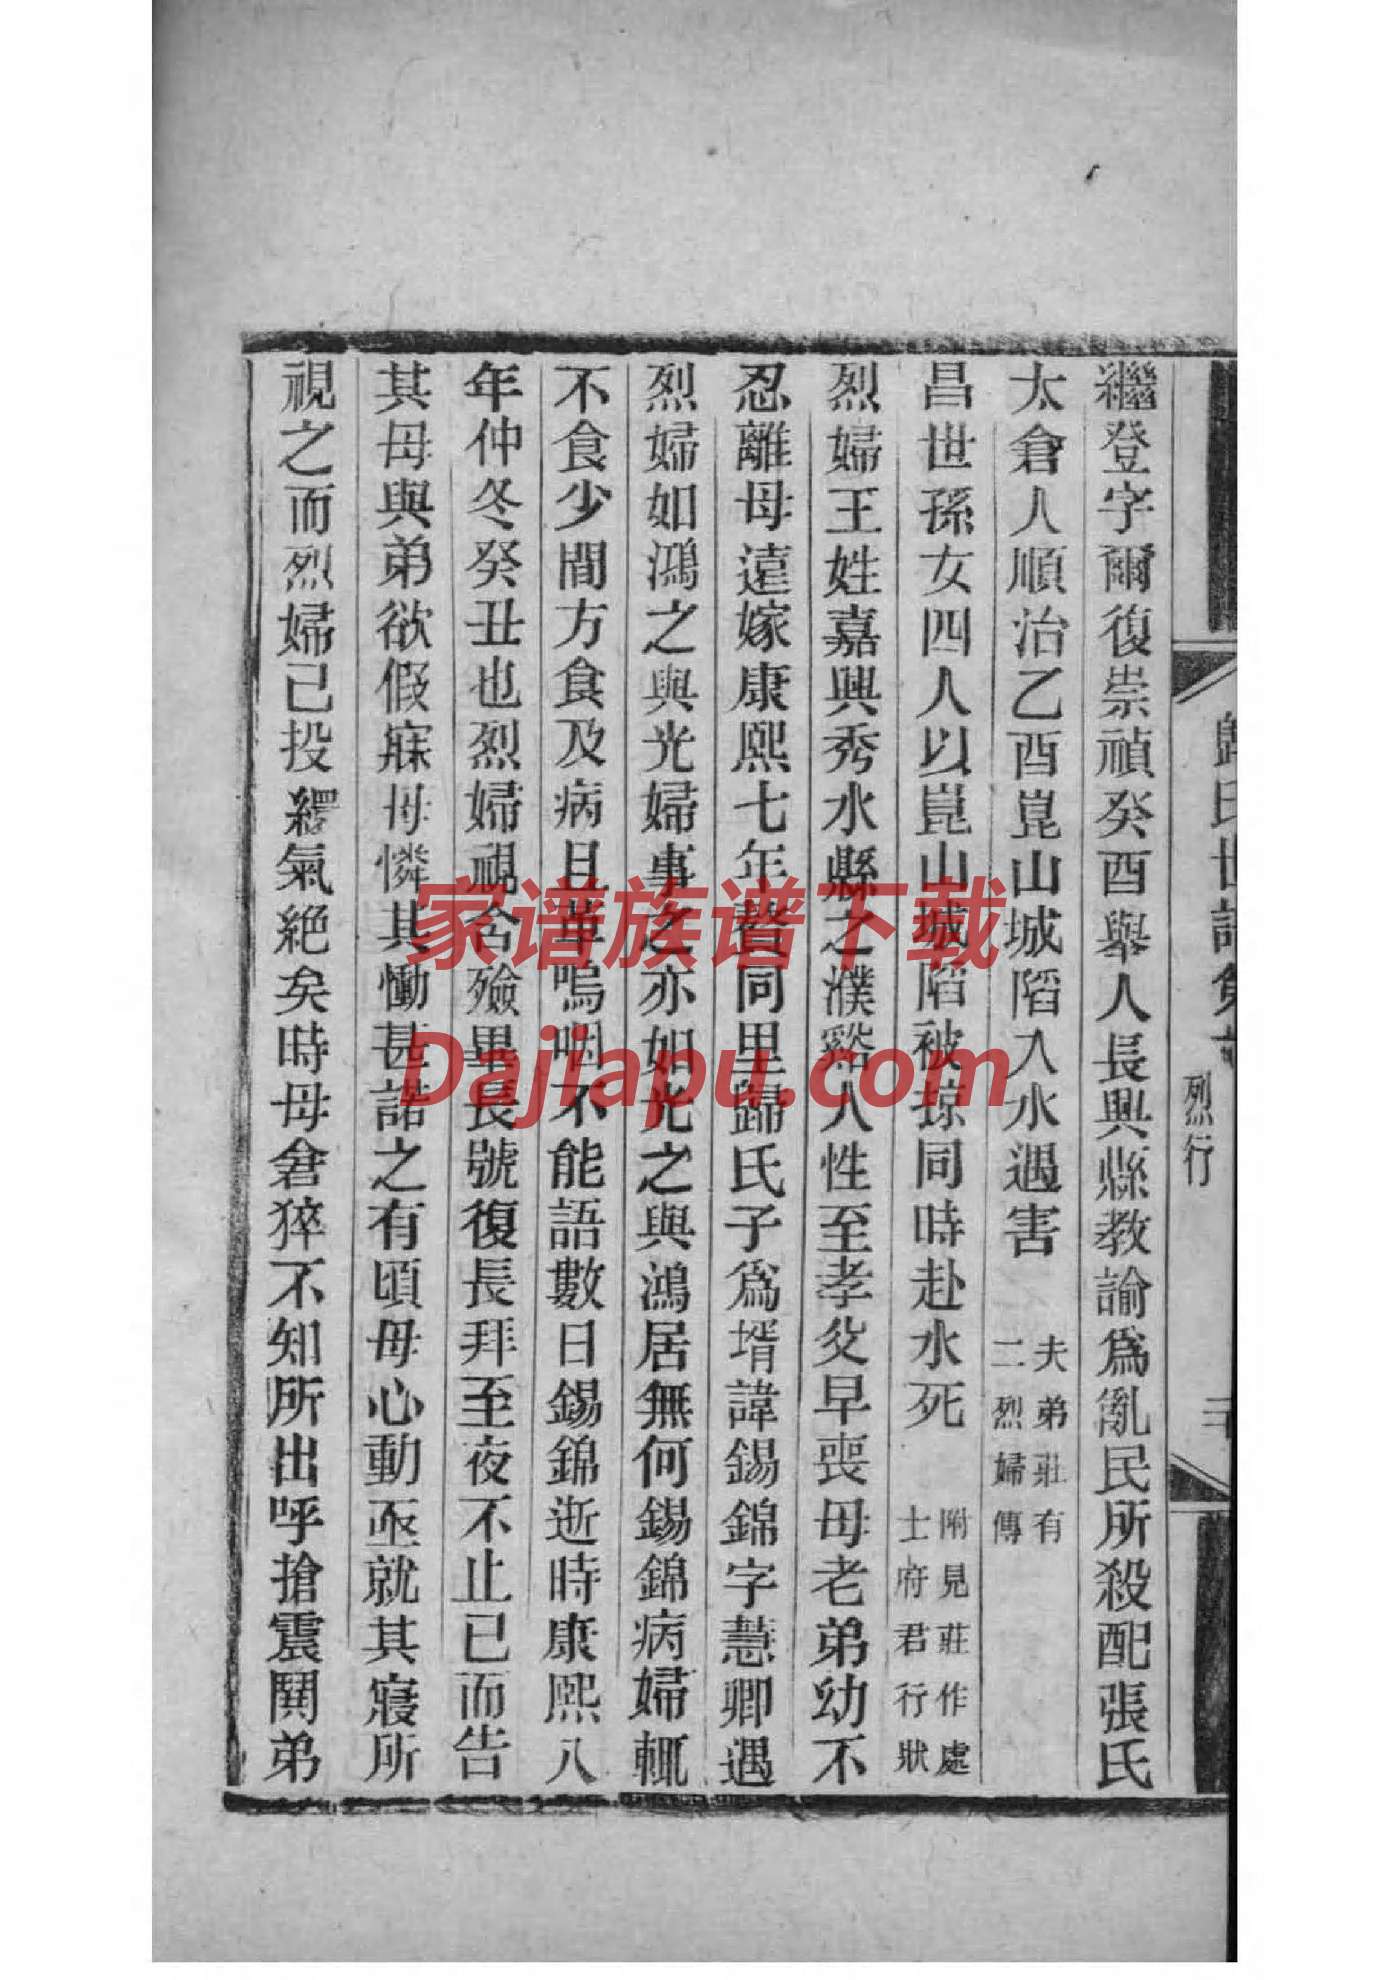 歸氏世譜
烈行
繼登字爾復崇禎癸酉舉人長興縣教諭爲亂民所殺配張氏
太倉人順治乙酉崑山城陷入水遇害夫弟莊有二烈婦傳
昌世孫女四人以崑山城陷被掠同時赴水死附見莊作處士府君行狀
烈婦王姓嘉興秀水縣之濮谿人性至孝父早喪母老弟幼不
忍離母遠嫁康熙七年贅同里歸氏子爲壻諱錫錦字慧卿遇
烈婦如鴻之與光婦事之亦如光之與鴻居無何錫錦病婦輒
不食少間方食及病且革嗚咽不能語數日錫錦逝時康熙八
年仲冬癸丑也烈婦視含殮畢長號復長拜至夜不止已而告
其母與弟欲假寐母憐其慟甚諾之有頃母心動亟就其寢所
視之而烈婦已投繯氣絕矣時母倉猝不知所出呼搶震鬨弟
家谱族谱下载
Dajiapu.com